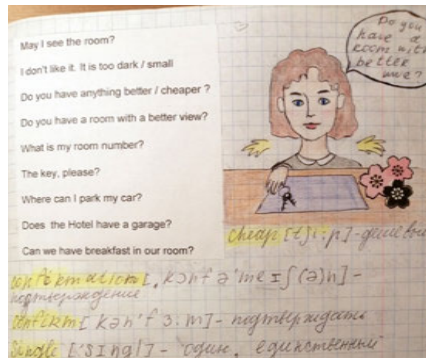 May I see the room?
I don't like it. It is too dark / small
Do you have anything better / cheaper ?
Do you have a room with a better view?
What is my room number?
The key, please?
Where can I park my car?
Does the Hotel have a garage?
Can we have breakfast in our room?
Do you
have a
room with
better
cheap [tʃi:p] - дешевый
confirmation [ˌkɔnfə'meɪʃ(ə)n] -
подтверждение
confirm [kən'fɜ:m] - подтверждать
single ['sɪŋgl] - один, единственный